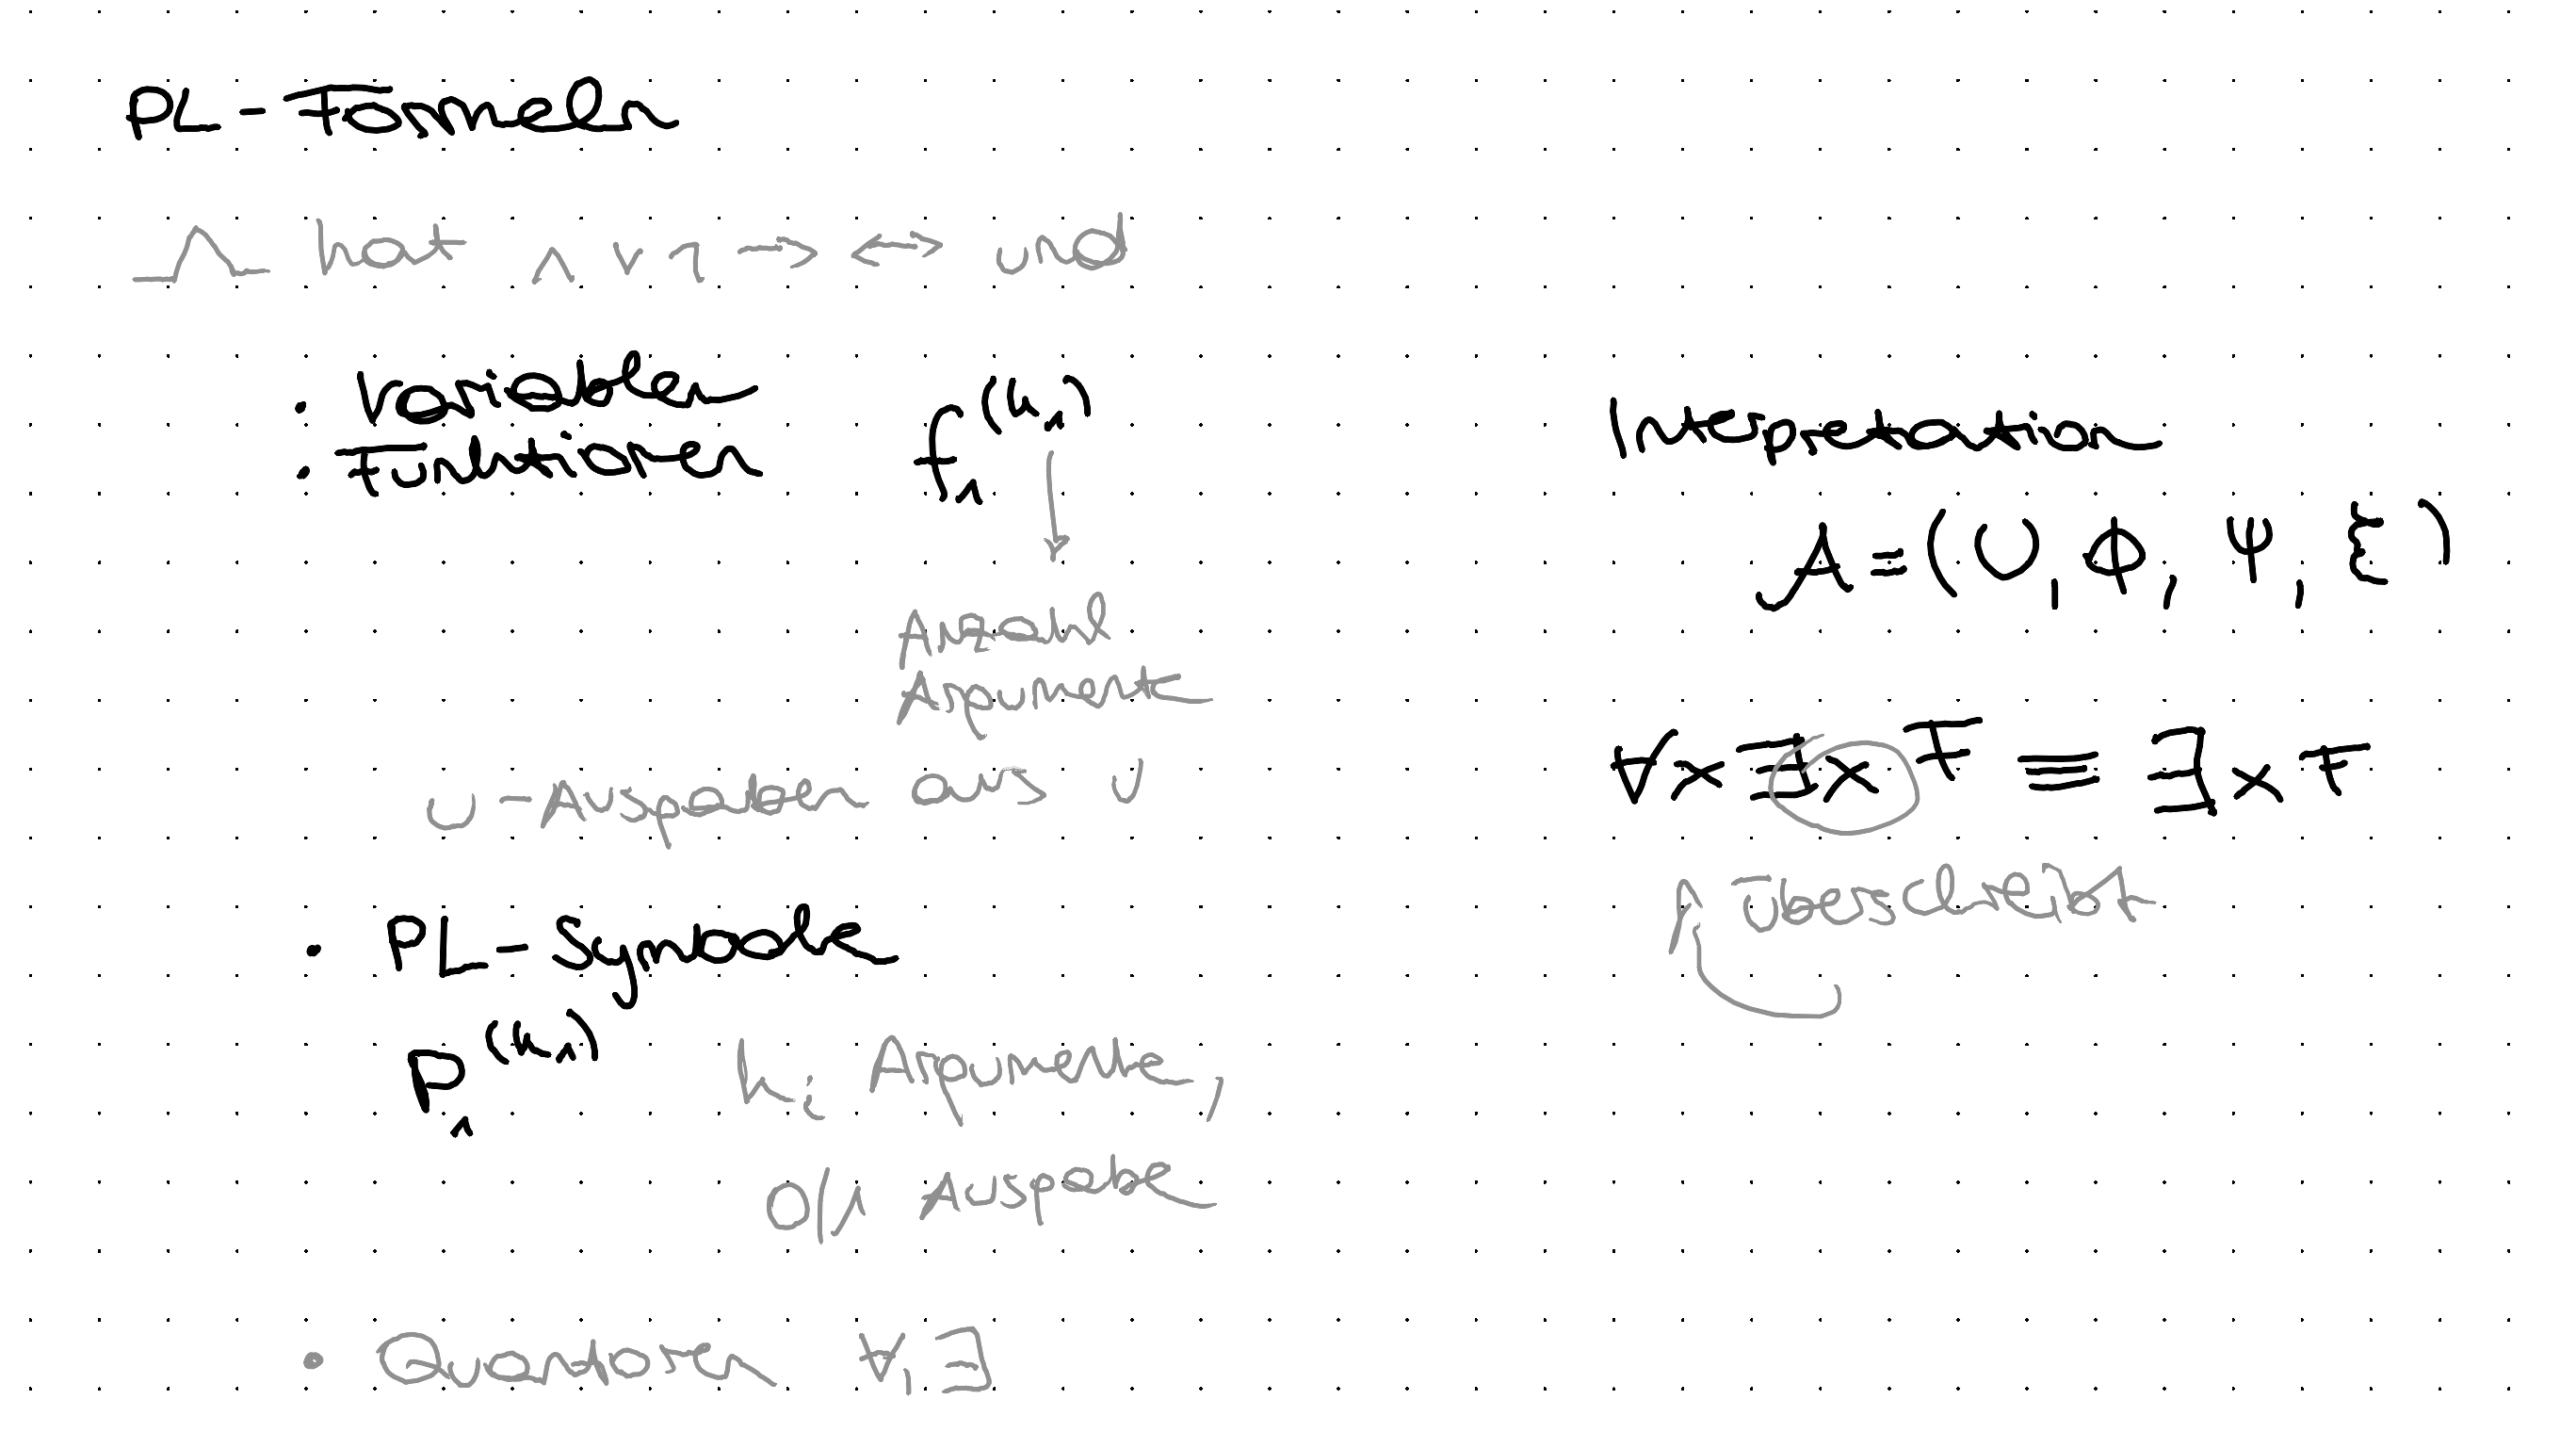 PL-Formeln
hat ∧ ∨ ¬ → ↔ und
• Variablen
• Funktionen f₁⁽ᵏ¹⁾
Anzahl
Argumente
U-Ausgaben aus U
• PL-Symbole
P₁⁽ᵏ¹⁾ kᵢ Argumente,
0/1 Ausgabe
• Quantoren ∀, ∃
Interpretation
A = (U, ϕ, ψ, ξ)
∀x∃x F ≡ ∃x F
überschreibt